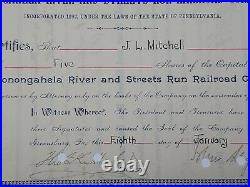 INCORPORATED 1902, UNDER THE LAWS OF THE STATE OF PENNSYLVANIA.
tifies, That J. L. Mitchell
Five Shares of the Capital
onongahela River and Streets Run Railroad C
by Attorney only on the books of the Company on the surrender of
In Witness Whereof, The President and Treasurer have
their Signatures and caused the Seal of the Company
Greensburg, this Eighth day of January